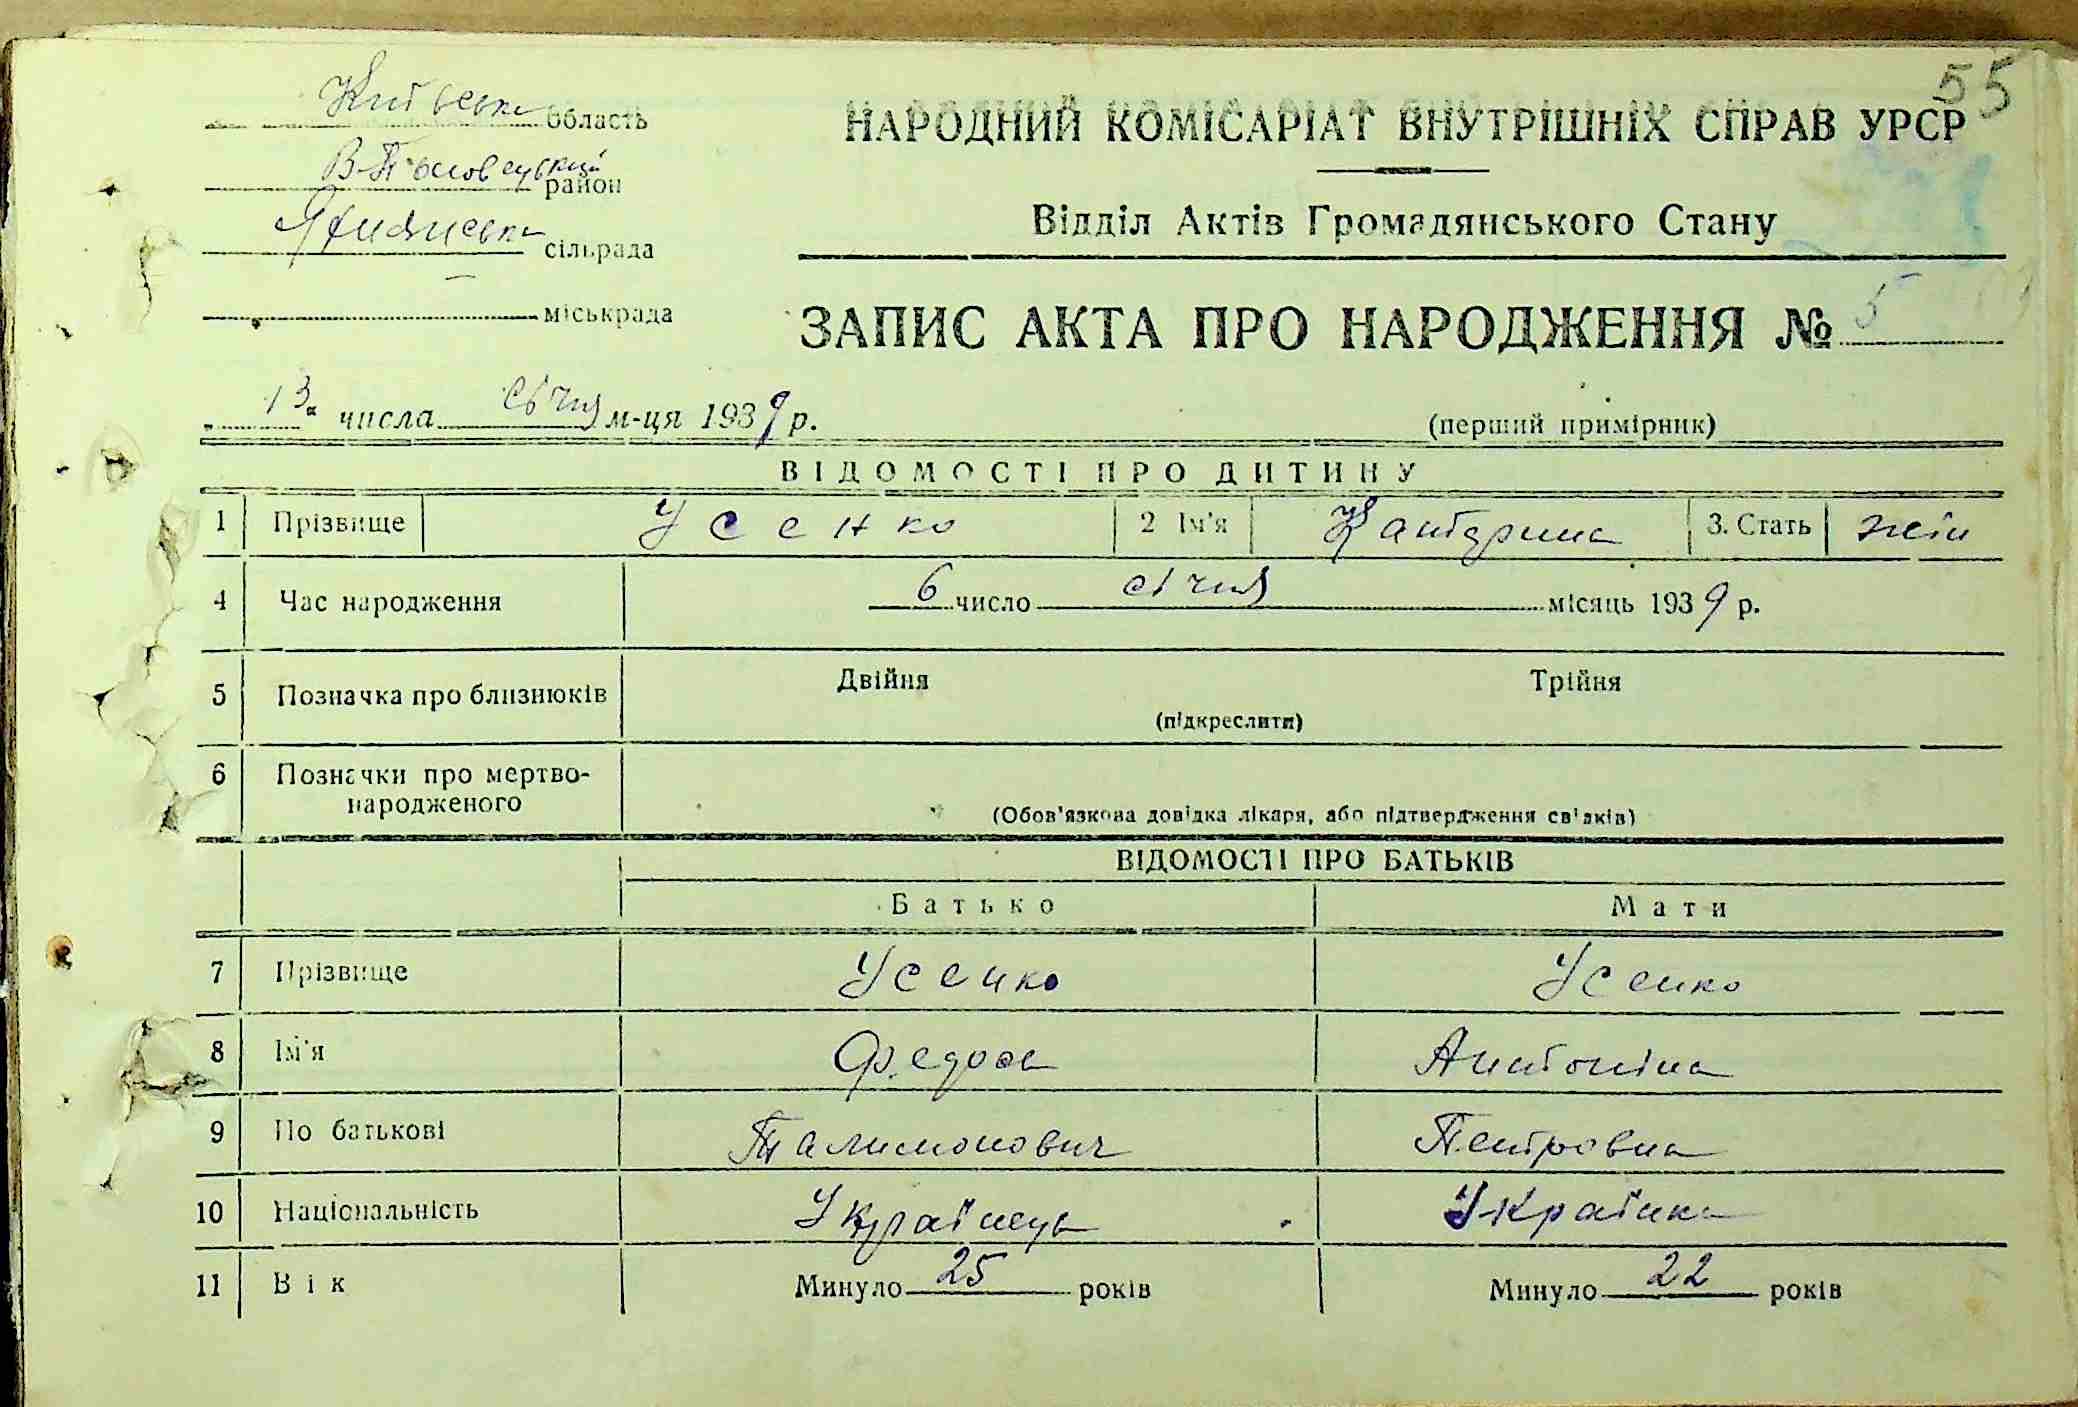 55
Київська область
В-Половецький район
сільрада
міськрада
НАРОДНИЙ КОМІСАРІАТ ВНУТРІШНІХ СПРАВ УРСР
Відділ Актів Громадянського Стану
ЗАПИС АКТА ПРО НАРОДЖЕННЯ № 5
13 " числа січня м-ця 1939 р.
(перший примірник)
ВІДОМОСТІ ПРО ДИТИНУ
1 Прізвище Усенко 2 Ім'я Катерина 3. Стать жін
4 Час народження 6 число січня місяць 1939 р.
5 Позначка про близнюків Двійня Трійня
(підкреслити)
6 Позначки про мертво-
народженого
(Обов'язкова довідка лікаря, або підтвердження свідків)
ВІДОМОСТІ ПРО БАТЬКІВ
Батько Мати
7 Прізвище Усенко Усенко
8 Ім'я Федось Антоніна
9 По батькові Палимонович Петровна
10 Національність Українець Українка
11 Вік Минуло 25 років Минуло 22 років